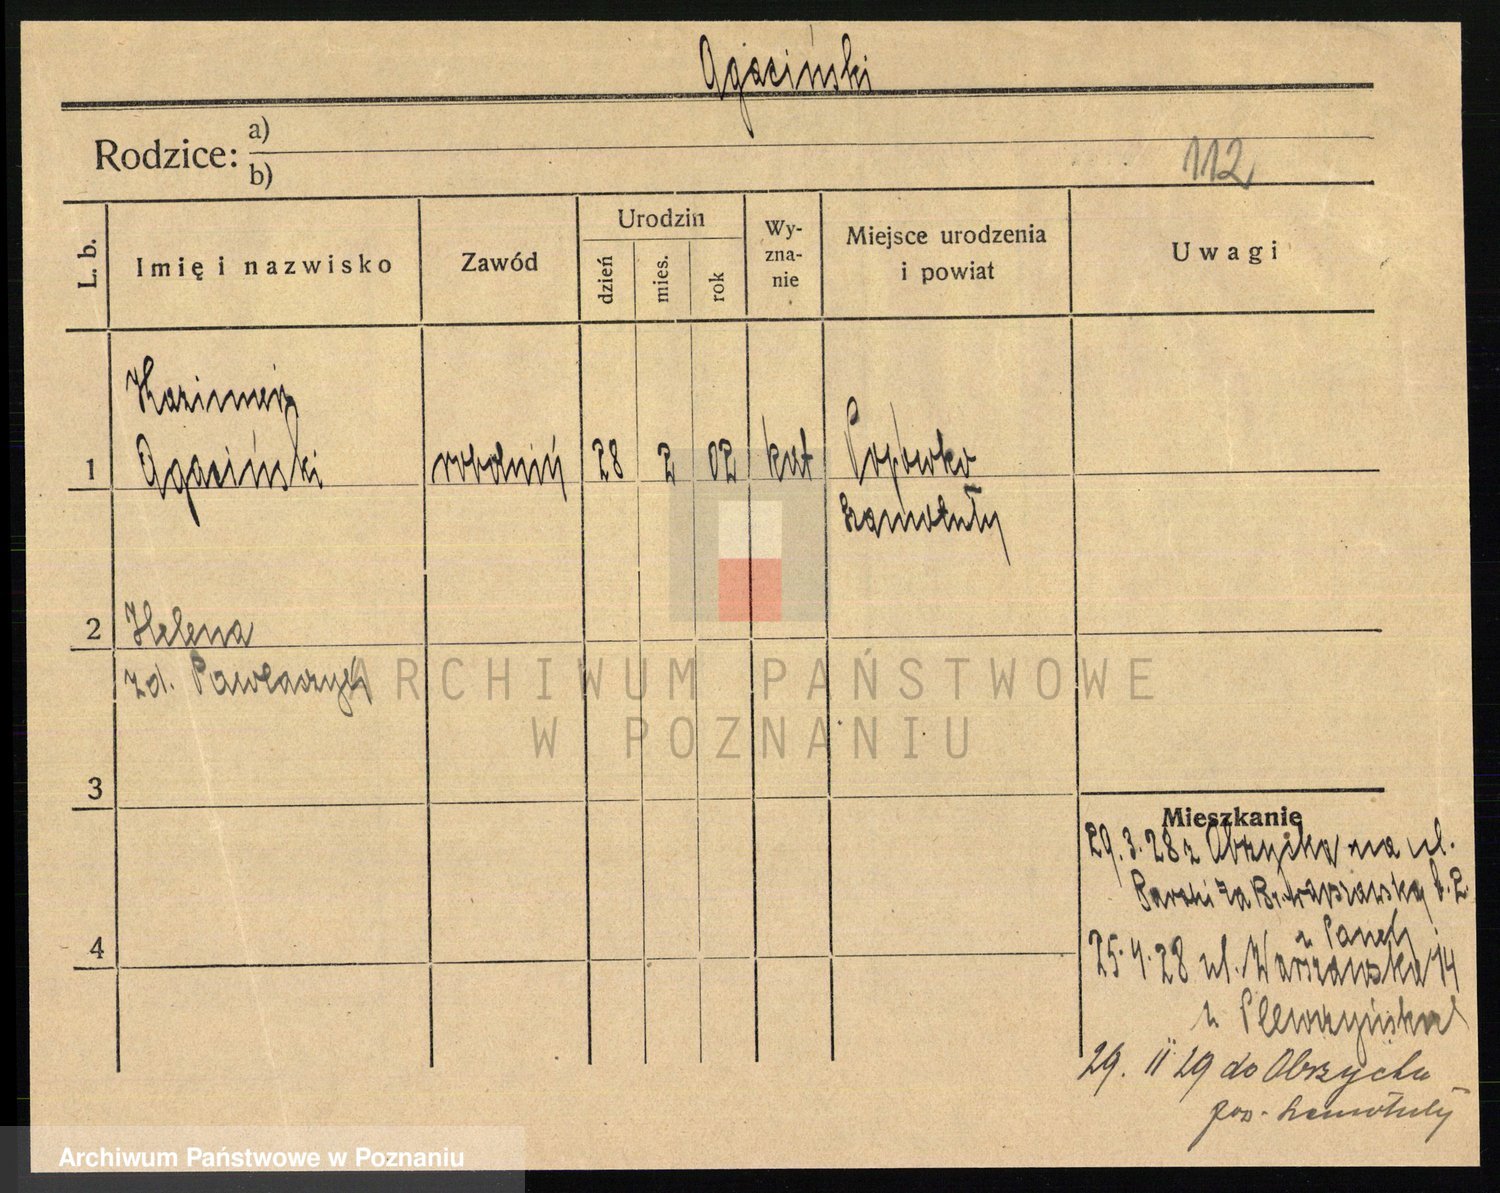 Agaciński
Rodzice: a)
b)
112
L. b.
Imię i nazwisko
Zawód
Urodzin
dzień
mies.
rok
Wy-
zna-
nie
Miejsce urodzenia
i powiat
Uwagi
Kazimierz
1 Agaciński robotnik 28 2 02 kat Popówko
Szamotuły
2 Helena
zd. Pawlaczyk
3
4
Mieszkanie
29.3.28 z Obrzycka na ul.
za Br. Warszawską
25.4.28 ul. Warszawska 14
u Plewczyńska
29. II 29 do Obrzycka
pow. Szamotuły
ARCHIWUM PAŃSTWOWE
W POZNANIU
Archiwum Państwowe w Poznaniu